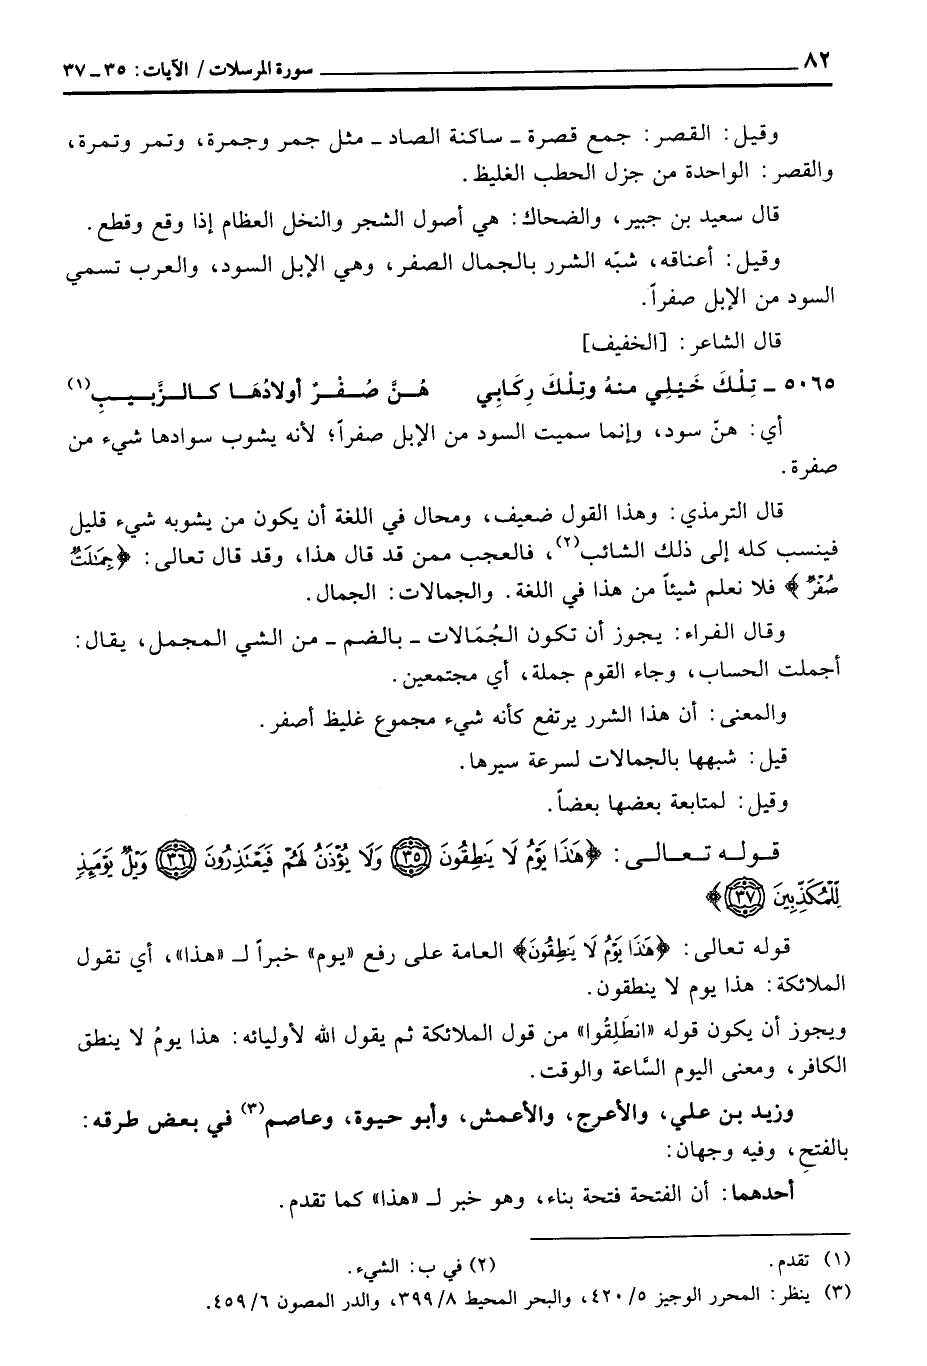 ٨٢ سورة المرسلات / الآيات: ٣٥ ـ ٣٧
وقيل: القصر: جمع قصرة ـ ساكنة الصاد ـ مثل جمر وجمرة، وتمر وتمرة،
والقصر: الواحدة من جزل الحطب الغليظ.
قال سعيد بن جبير، والضحاك: هي أصول الشجر والنخل العظام إذا وقع وقطع.
وقيل: أعناقه، شبّه الشرر بالجمال الصفر، وهي الإبل السود، والعرب تسمي
السود من الإبل صفراً.
قال الشاعر: [الخفيف]
٥٠٦٥ ـ تِلْكَ خَيْلِي منهُ وتِلْكَ رِكَابِي هُنَّ صُفْرٌ أولادُهَا كالزَّبيبِ(١)
أي: هنّ سود، وإنما سميت السود من الإبل صفراً؛ لأنه يشوب سوادها شيء من
صفرة.
قال الترمذي: وهذا القول ضعيف، ومحال في اللغة أن يكون من يشوبه شيء قليل
فينسب كله إلى ذلك الشائب(٢)، فالعجب ممن قد قال هذا، وقد قال تعالى: ﴿جِمَٰلَتٌ
صُفْرٌ﴾ فلا نعلم شيئاً من هذا في اللغة. والجمالات: الجمال.
وقال الفراء: يجوز أن تكون الجُمَالات ـ بالضم ـ من الشي المجمل، يقال:
أجملت الحساب، وجاء القوم جملة، أي مجتمعين.
والمعنى: أن هذا الشرر يرتفع كأنه شيء مجموع غليظ أصفر.
قيل: شبهها بالجمالات لسرعة سيرها.
وقيل: لمتابعة بعضها بعضاً.
قوله تعالى: ﴿هَٰذَا يَوْمُ لَا يَنطِقُونَ ٣٥ وَلَا يُؤْذَنُ لَهُمْ فَيَعْتَذِرُونَ ٣٦ وَيْلٌ يَوْمَئِذٍ
لِّلْمُكَذِّبِينَ ٣٧﴾
قوله تعالى: ﴿هَٰذَا يَوْمُ لَا يَنطِقُونَ﴾ العامة على رفع «يوم» خبراً لـ «هذا»، أي تقول
الملائكة: هذا يوم لا ينطقون.
ويجوز أن يكون قوله «انطَلِقُوا» من قول الملائكة ثم يقول الله لأوليائه: هذا يومُ لا ينطق
الكافر، ومعنى اليوم السَّاعة والوقت.
وزيد بن علي، والأعرج، والأعمش، وأبو حيوة، وعاصم(٣) في بعض طرقه:
بالفتح، وفيه وجهان:
أحدهما: أن الفتحة فتحة بناء، وهو خبر لـ «هذا» كما تقدم.
(١) تقدم. (٢) في ب: الشيء.
(٣) ينظر: المحرر الوجيز ٥/ ٤٢٠، والبحر المحيط ٨/ ٣٩٩، والدر المصون ٦/ ٤٥٩.